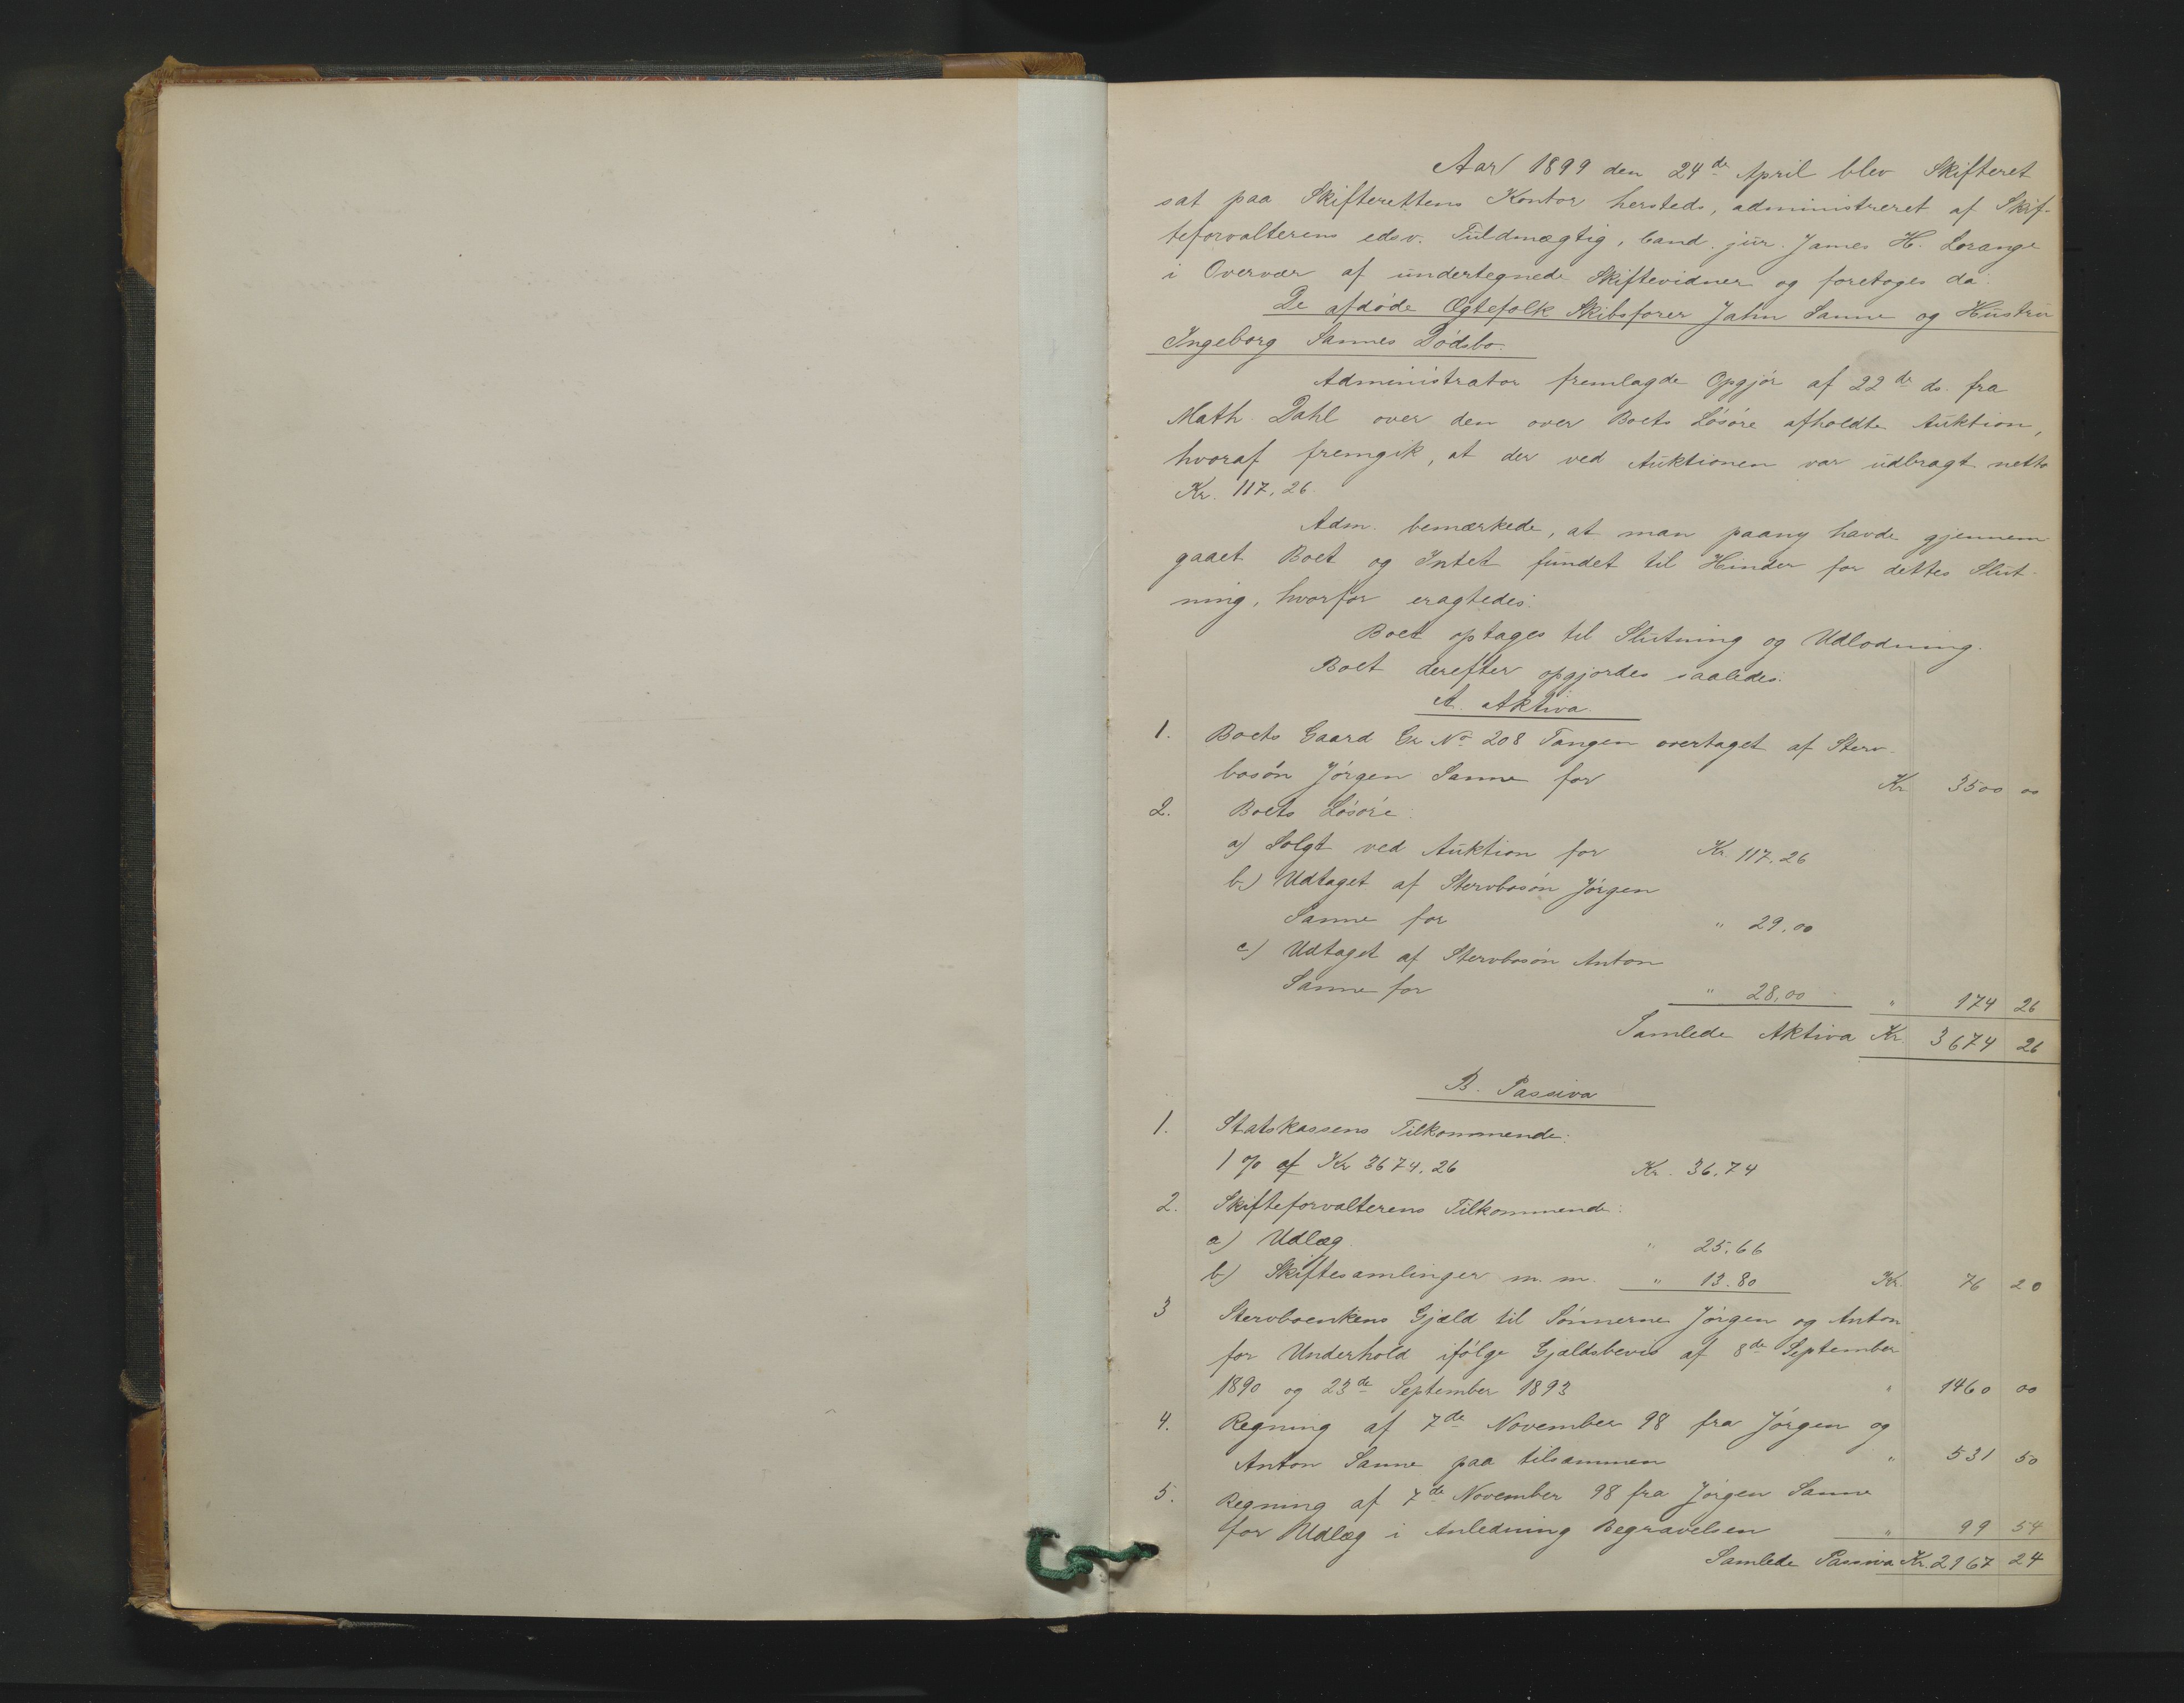 Aar 1899 den 24de April blev Skifteret
sat paa Skifterettens Kontor hersteds, administreret af Skif-
teforvalterens edsv. Fuldmægtig, Cand. jur. James H. Lorange
i Overvær af undertegnede Skiftevidner og foretoges da:
De afdøde Ægtefolk Skibsfører Jahn Sanne og Hustru
Ingeborg Sannes Dødsbo.
Administrator fremlagde Opgjør af 22de ds. fra
Math. Dahl over den over Boets Løsøre afholdte Auktion,
hvoraf fremgik, at der ved Auktionen var udbragt netto
Kr. 117,26.
Adm. bemærkede, at man paany havde gjennem
gaaet Boet og Intet fundet til Hinder for dettes Slut-
ning, hvorfor eragtedes:
Boet optages til Slutning og Udlodning.
Boet derefter opgjordes saaledes:
A. Aktiva.
1. Boets Gaard Gr No 208 Tangen overtaget af Sterv-
bosøn Jørgen Sanne for Kr 3500 00
2. Boets Løsøre:
a) Solgt ved Auktion for Kr. 117.26
b) Udtaget af Stervbosøn Jørgen
Sanne for " 29.00
c) Udtaget af Stervbosøn Anton
Sanne for " 28,00 " 174 26
Samlede Aktiva Kr. 3674 26
B. Passiva
1. Statskassens Tilkommende:
1 % af Kr 3674.26 Kr. 36.74
2. Skifteforvalterens Tilkommende:
a) Udlæg " 25.66
b) Skiftesamlinger m. m. " 13.80 Kr. 76 20
3 Stervboenkens Gjæld til Sønnerne Jørgen og Anton
for Underhold ifølge Gjældsbevis af 8de September
1890 og 23de September 1893 " 1460 00
4. Regning af 7de November 98 fra Jørgen og
Anton Sanne paa tilsammen " 531 50
5. Regning af 7de November 98 fra Jørgen Sanne
for Udlæg i Anledning Begravelsen " 99 54
Samlede Passiva Kr. 2167 24